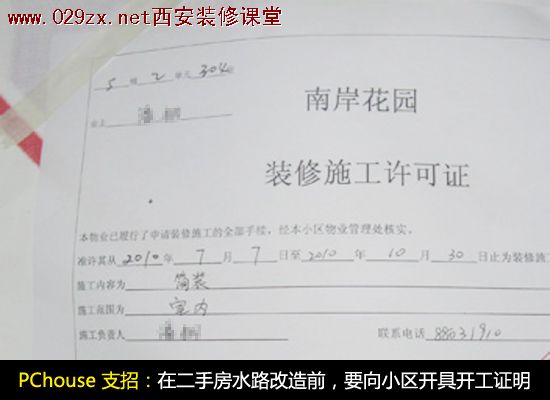 www.029zx.net西安装修课堂
5 幢 2 单元 304室
业主
南岸花园
装修施工许可证
本物业已履行了申请装修施工的全部手续，经本小区物业管理处核实，
准许其从 2010 年 7 月 7 日至 2010 年 10 月 30 日止为装修施工
施工内容为 简装
施工范围为 室内
施工负责人 联系电话 88031910
PChouse 支招：在二手房水路改造前，要向小区开具开工证明